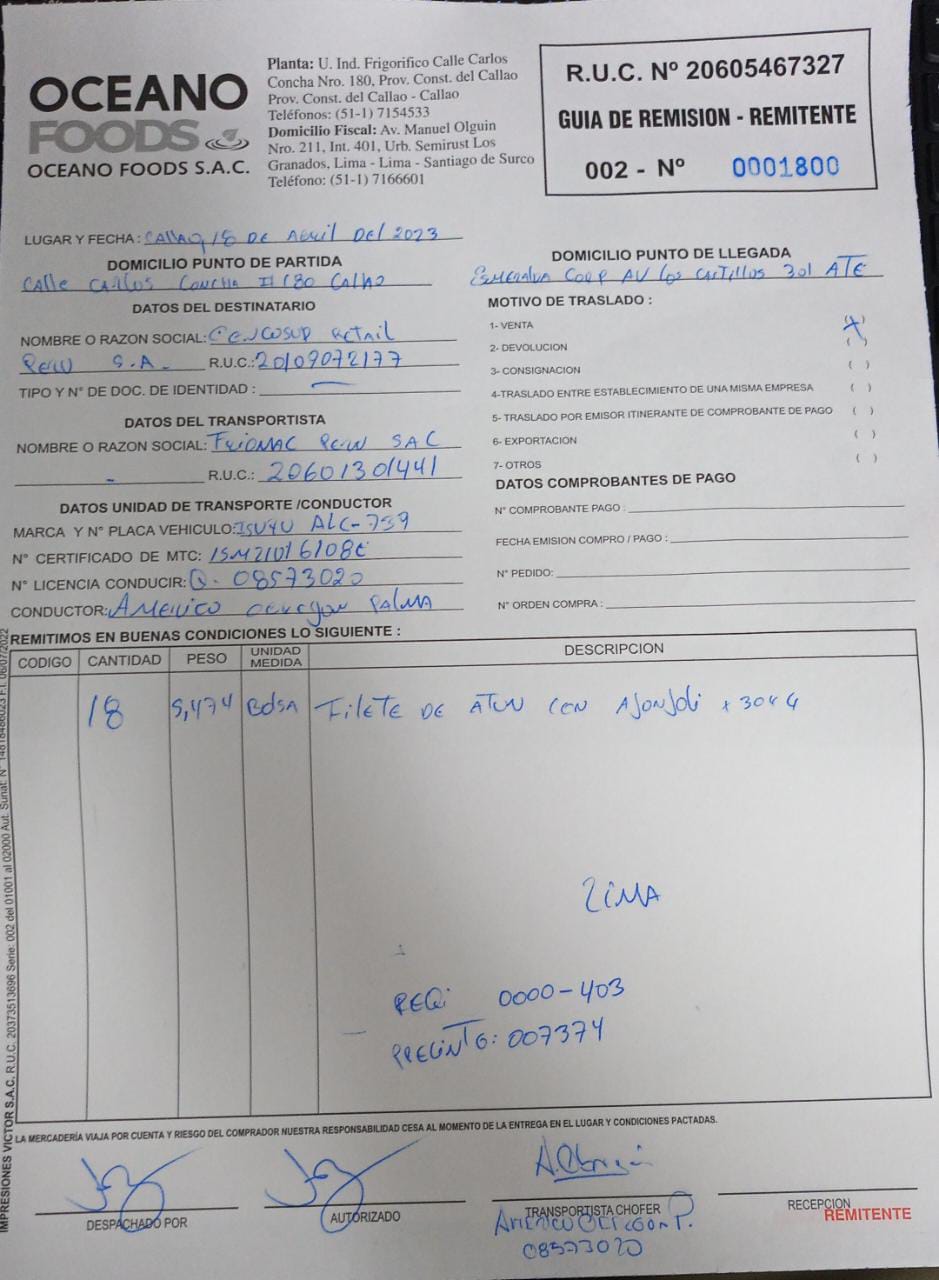 OCEANO
FOODS
OCEANO FOODS S.A.C.
Planta: U. Ind. Frigorifico Calle Carlos
Concha Nro. 180, Prov. Const. del Callao
Prov. Const. del Callao - Callao
Teléfonos: (51-1) 7154533
Domicilio Fiscal: Av. Manuel Olguin
Nro. 211, Int. 401, Urb. Semirust Los
Granados, Lima - Lima - Santiago de Surco
Teléfono: (51-1) 7166601
R.U.C. Nº 20605467327
GUIA DE REMISION - REMITENTE
002 - Nº 0001800
LUGAR Y FECHA: CALLAO, 18 DE ABRIL DEL 2023
DOMICILIO PUNTO DE PARTIDA
Calle CARLOS CONCHA # 180 CALLAO
DOMICILIO PUNTO DE LLEGADA
ESMERALDA CORP AV LOS CASTILLOS 301 ATE
DATOS DEL DESTINATARIO
NOMBRE O RAZON SOCIAL: CENCOSUD RETAIL
PERU S.A. R.U.C.: 20109072177
TIPO Y Nº DE DOC. DE IDENTIDAD : —
DATOS DEL TRANSPORTISTA
NOMBRE O RAZON SOCIAL: FRIOMAC PERU SAC
- R.U.C.: 20601301441
DATOS UNIDAD DE TRANSPORTE /CONDUCTOR
MARCA Y Nº PLACA VEHICULO: ISUZU ALC-759
Nº CERTIFICADO DE MTC: 15M21016108E
Nº LICENCIA CONDUCIR: Q-08573020
CONDUCTOR: AMERICO OBREGON PALMA
MOTIVO DE TRASLADO :
1- VENTA (X)
2- DEVOLUCION ( )
3- CONSIGNACION ( )
4-TRASLADO ENTRE ESTABLECIMIENTO DE UNA MISMA EMPRESA ( )
5- TRASLADO POR EMISOR ITINERANTE DE COMPROBANTE DE PAGO ( )
6- EXPORTACION ( )
7- OTROS ( )
DATOS COMPROBANTES DE PAGO
Nº COMPROBANTE PAGO :
FECHA EMISION COMPRO / PAGO :
Nº PEDIDO:
Nº ORDEN COMPRA :
REMITIMOS EN BUENAS CONDICIONES LO SIGUIENTE :
CODIGO CANTIDAD PESO UNIDAD MEDIDA DESCRIPCION
18 5,474 BOLSA FILETE DE ATUN CON AJONJOLI x 304 G
LIMA
REQ: 0000-403
PRECINTO: 007374
LA MERCADERÍA VIAJA POR CUENTA Y RIESGO DEL COMPRADOR NUESTRA RESPONSABILIDAD CESA AL MOMENTO DE LA ENTREGA EN EL LUGAR Y CONDICIONES PACTADAS.
DESPACHADO POR
AUTORIZADO
TRANSPORTISTA CHOFER
AMERICO OBREGON P.
08573020
RECEPCION
REMITENTE
IMPRESIONES VICTOR S.A.C. R.U.C. 20373513696 Serie: 002 del 01001 al 02000 Aut. Sunat: Nº F.I. 06/07/2022